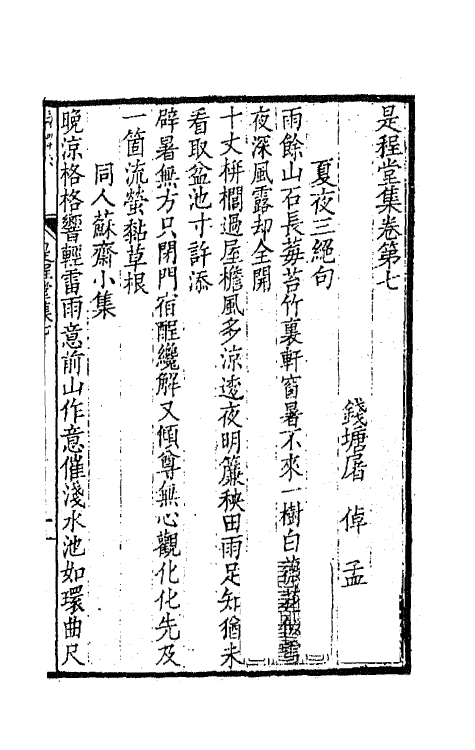 是程堂集卷第七
錢塘屠 倬 孟
夏夜三絕句
雨餘山石長莓苔竹裏軒窗暑不來一樹白
夜深風露却全開
十丈栟櫚過屋檐風多涼透夜明簾秧田雨足知猶未
看取盆池寸許添
辟暑無方只閉門宿酲纔解又傾尊無心觀化化先及
一箇流螢黏草根
同人蘇齋小集
晚涼格格響輕雷雨意前山作意催淺水池如環曲尺